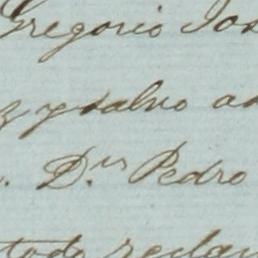 Gregorio Jos
z y salvo a
D.ⁿ Pedro
todo reclam